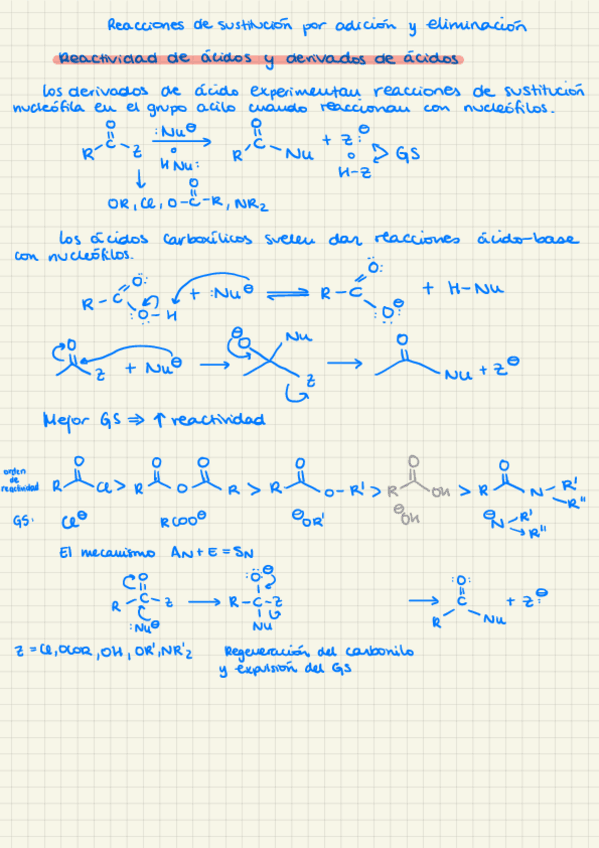 Reacciones de sustitución por adición y eliminación
Reactividad de ácidos y derivados de ácidos
Los derivados de ácido experimentan reacciones de sustitución
nucleófila en el grupo acilo cuando reaccionan con nucleófilos.
O :Nu⊖ O
R-C-Z → R-C-Nu + Z:⊖
o HNu: o H-Z > GS
↓
O
OR, Cl, O-C-R, NR2
Los ácidos carboxílicos suelen dar reacciones ácido-base
con nucleófilos.
R-C O: :O-H + :Nu⊖ ⇌ R-C O: :O:⊖ + H-Nu
O Z + Nu⊖ → ⊖O Nu Z → O Nu + Z⊖
Mejor GS ⇒ ↑ reactividad
orden
de
reactividad
R O Cl > R O O O R > R O O-R' > R O OH > R O N-R' R"
GS: Cl⊖ RCOO⊖ ⊖OR' ⊖OH ⊖N-R' R"
El mecanismo AN+E=SN
O :O:⊖ :O:
R-C-Z → R-C-Z → C + Z:⊖
:Nu⊖ Nu R Nu
Z = Cl, OCOR, OH, OR', NR'2 Regeneración del carbonilo
y expulsión del GS